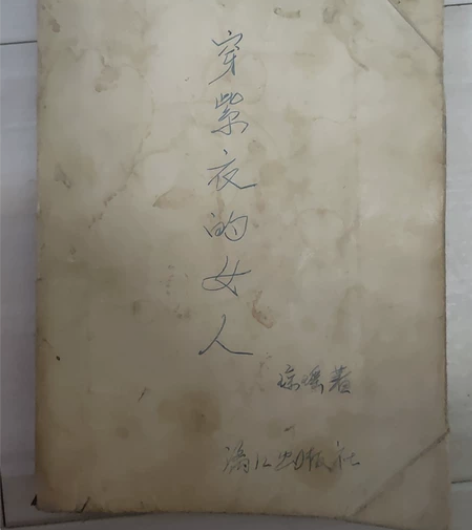 穿紫衣的女人
琼瑶著
漓江出版社